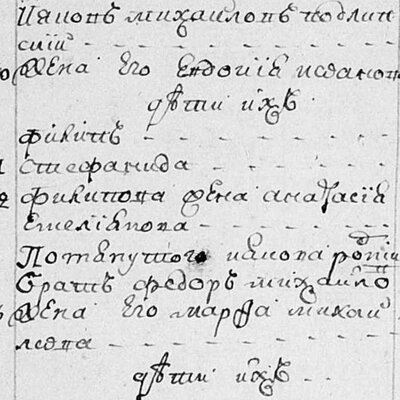 Ияковъ михаиловъ подлин
ской
Жена его Евдокія иванов
дѣти ихъ
филипъ
Стефанида
филипова жена анастасія
Емеліянова
Потомушного иакова родни
братъ федоръ михаило
Жена его марѳа михаи
лова
дѣти ихъ